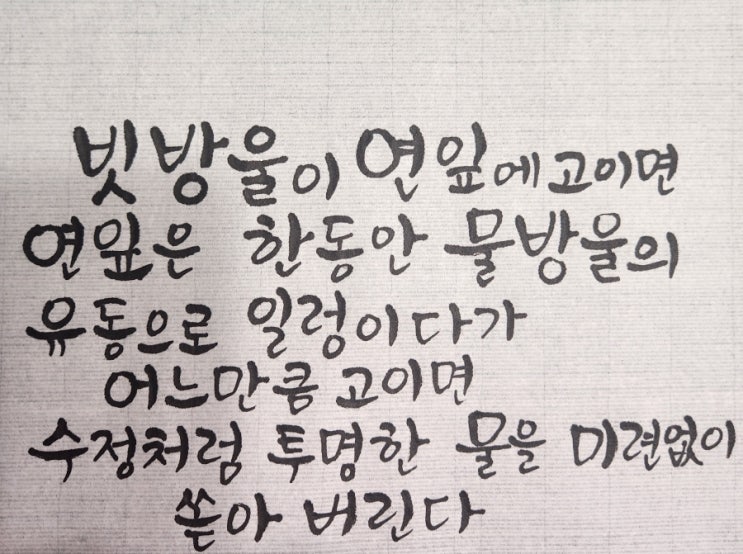 빗방울이 연잎에 고이면
연잎은 한동안 물방울의
유동으로 일렁이다가
어느만큼 고이면
수정처럼 투명한 물을 미련없이
쏟아 버린다